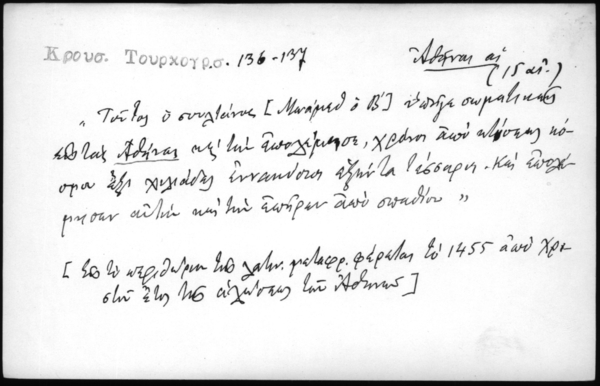 Κρουσ. Τουρκογρ. 136-137
Ἀθῆναι αἱ
(15 αἰ.)
„ Τοῦτος ὁ σουλτάνος [Μωάμεθ ὁ Β'] ἐπῆγε σωματικῶς
εἰς τὰς Ἀθήνας καὶ τὴν ἐπολέμησε, χρόνοι ἀπὸ κτίσεως κό-
σμου ἕξι χιλιάδες ἐννακόσιοι ἑξῆντα τέσσαρις. Καὶ ἐπολέ-
μησαν αὐτὴν καὶ τὴν ἐπῆραν ἀπὸ σπαθίου "
[Εἰς τὸ περιθώριον τῆς λατιν. μεταφρ. φέρεται τὸ 1455 ἀπὸ Χρι-
στοῦ ἔτος τῆς ἁλώσεως τῶν Ἀθηνῶν]